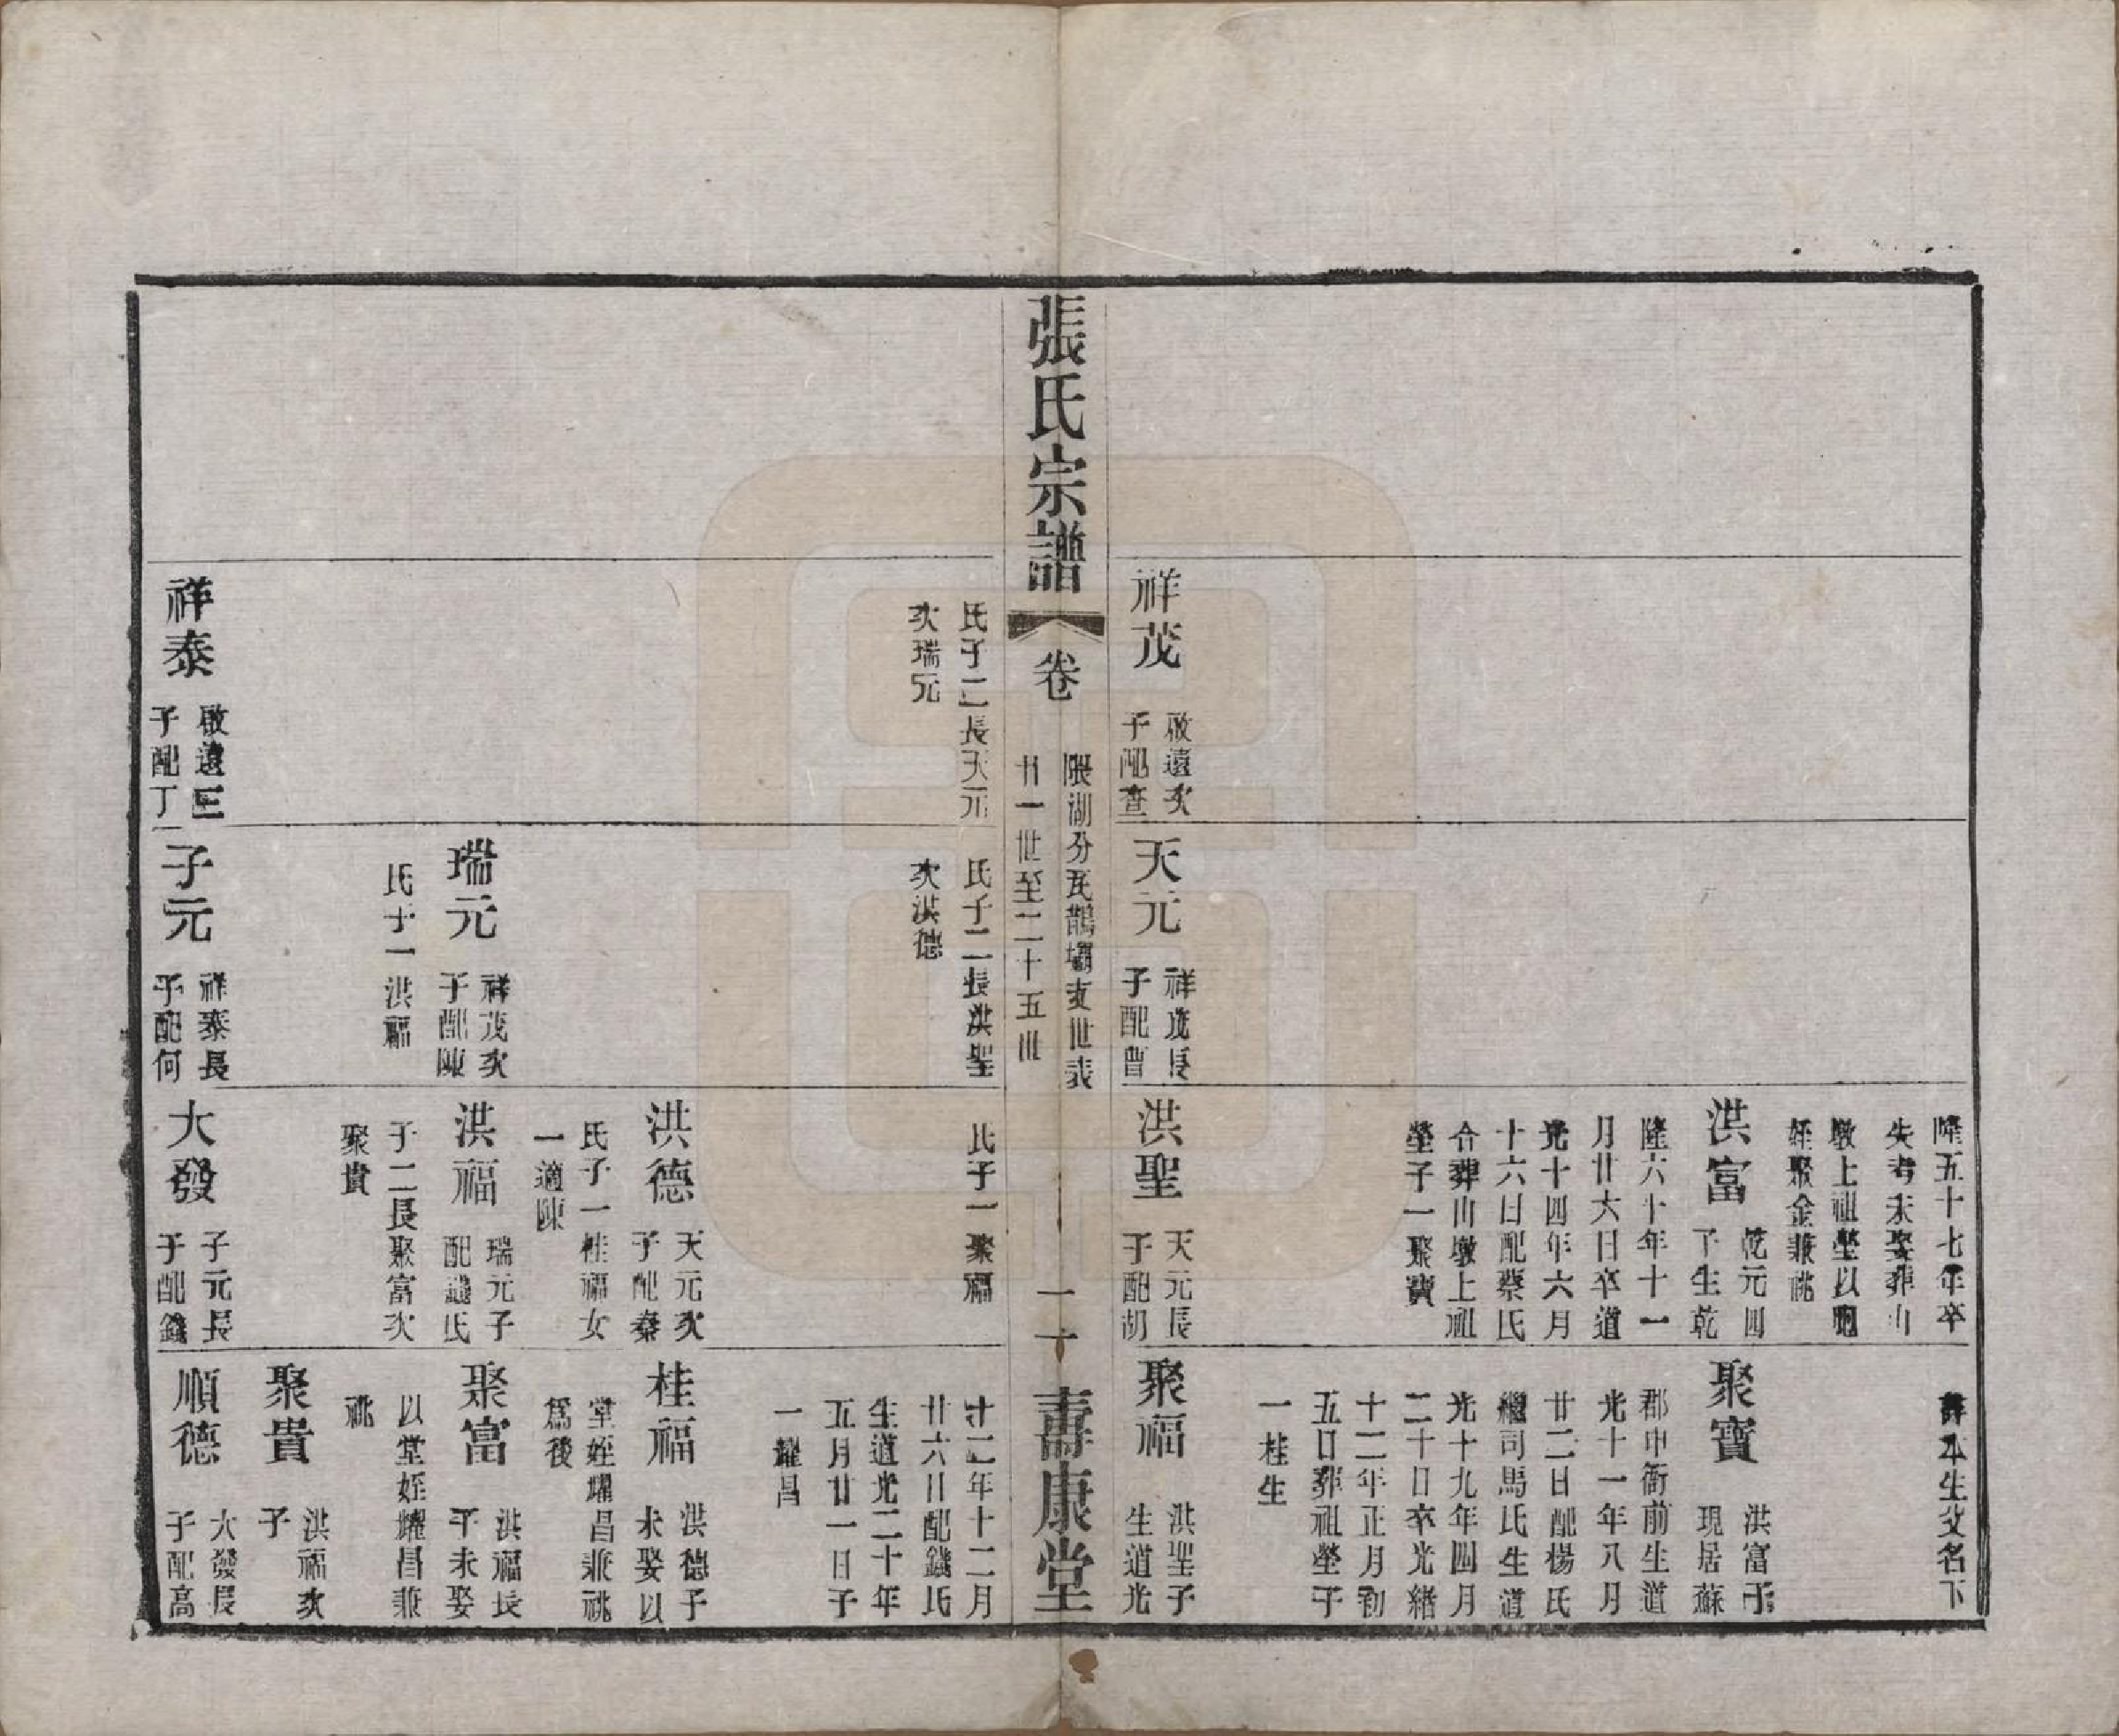 隆五十七年卒
失考未娶葬山
墩上祖塋以
姪聚金兼祧
詳本生父名下
洪富
乾元四
子生乾
隆六十年十一
月廿六日卒道
光十四年六月
十六日配蔡氏
合葬山墩上祖
塋子一聚寶
聚寶
洪富子
現居蘇
郡申衙前生道
光十一年八月
廿二日配楊氏
繼司馬氏生道
光十九年四月
二十日卒光緒
十二年正月初
五日葬祖塋子
一桂生
祥茂
啟遠次
子配查
天元
祥茂長
子配曹
洪聖
天元長
子配胡
聚福
洪聖子
生道光
張氏宗譜
卷
隈湖分瓦鵲壩支世表
廿一世至二十五世
一十
壽康堂
氏子二長天元
次瑞元
氏子二長洪聖
次洪德
氏子一聚福
十二年十二月
廿六日配錢氏
生道光二十年
五月廿一日子
一耀昌
洪德
天元次
子配秦
氏子一桂福女
一適陳
桂福
洪德子
未娶以
堂姪耀昌兼祧
爲後
瑞元
祥茂次
子配陳
氏子一洪福
洪福
瑞元子
配錢氏
子二長聚富次
聚貴
聚富
洪福長
子未娶
以堂姪耀昌兼
祧
聚貴
洪福次
子
祥泰
啟遠三
子配丁
子元
祥泰長
子配何
大發
子元長
子配錢
順德
大發長
子配高